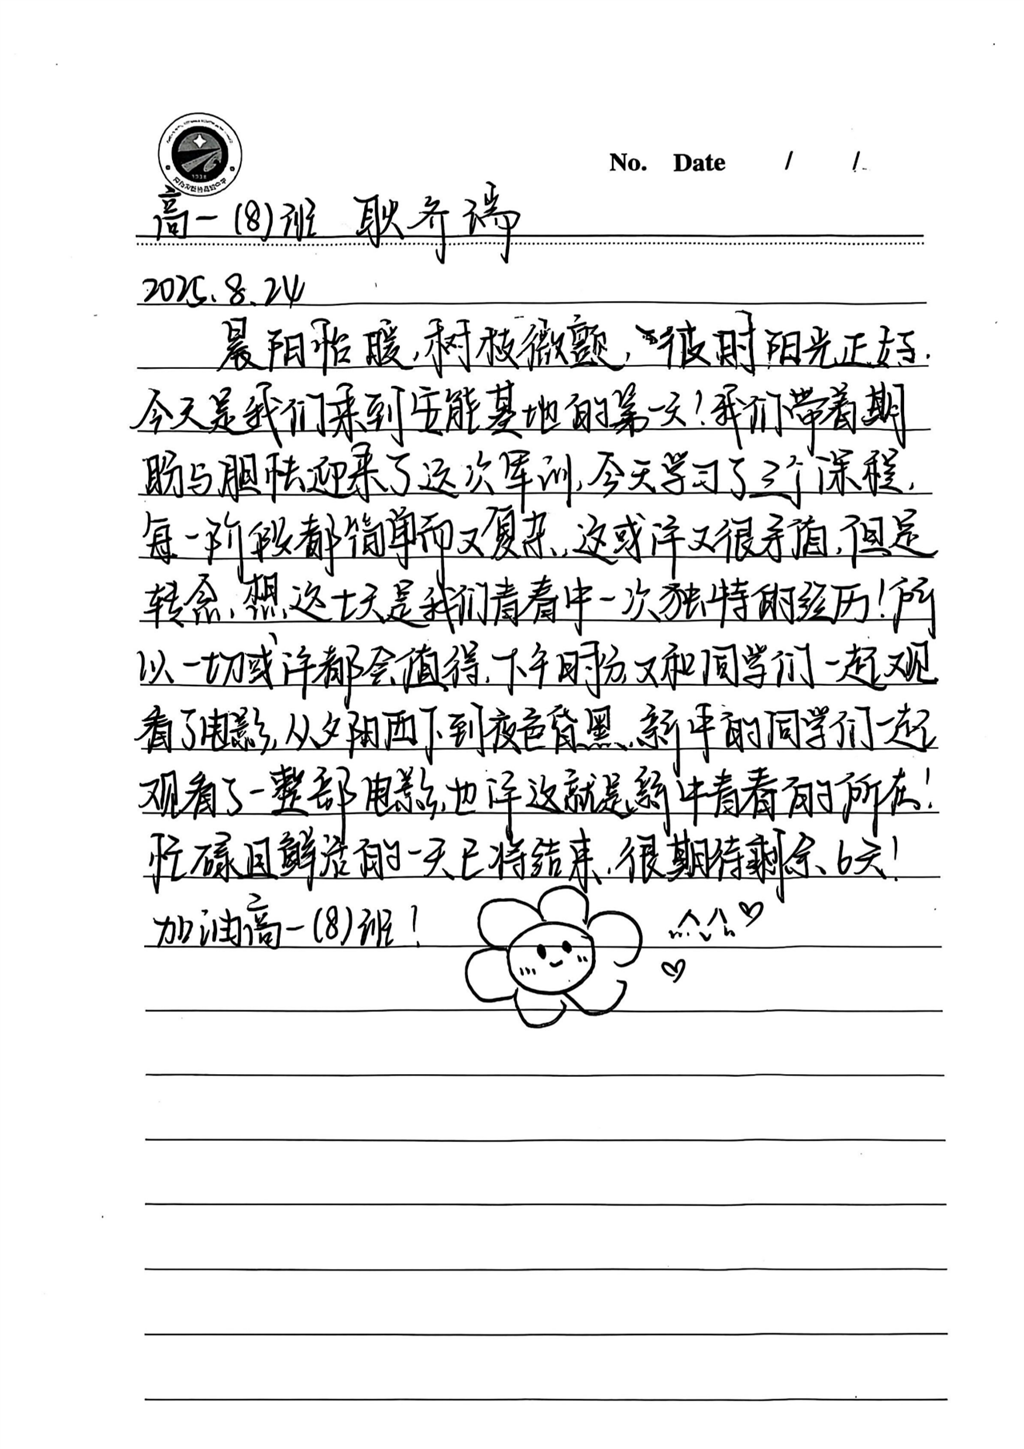 No. Date / /
高一(8)班 耿齐瑞
2025.8.24
晨阳怡暖,树枝微颤,彼时阳光正好.
今天是我们来到安能基地的第一天!我们带着期
盼与胆怯迎来了这次军训,今天学习了三个课程,
每一阶段都简单而又复杂,这或许又很亲值,但是
转念,想,这七天是我们青春中一次独特的经历!所
以一切或许都会值得,下午时分,又和同学们一起观
看了电影,从夕阳西下到夜色昏黑,新中的同学们一起
观看了一整部电影,也许这就是新中青春的所在!
忙碌且鲜活的一天已将结束,很期待剩余、6天!
加油高一(8)班!